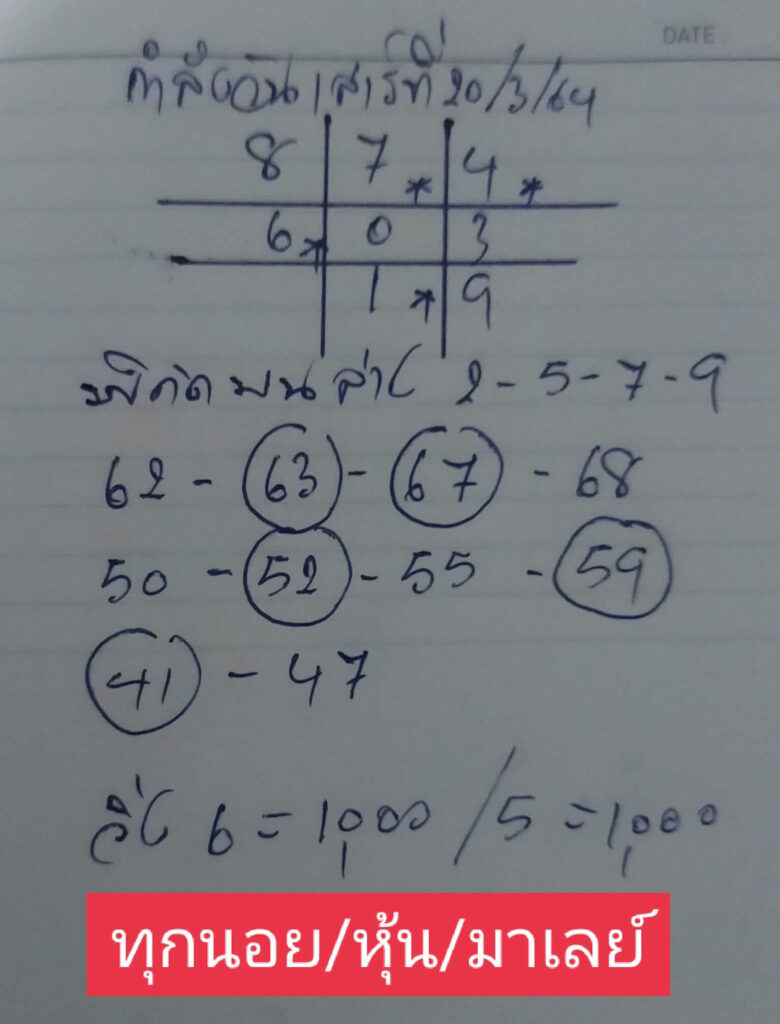 DATE :
กำลังวันเสาร์ที่ 20/3/64
8 7* 4*
6* 0 3
1* 9
พิกัด บน ล่าง 2-5-7-9
62 - 63 - 67 - 68
50 - 52 - 55 - 59
41 - 47
วิ่ง 6 = 1,000 / 5 = 1,000
ทุกนอย/หุ้น/มาเลย์